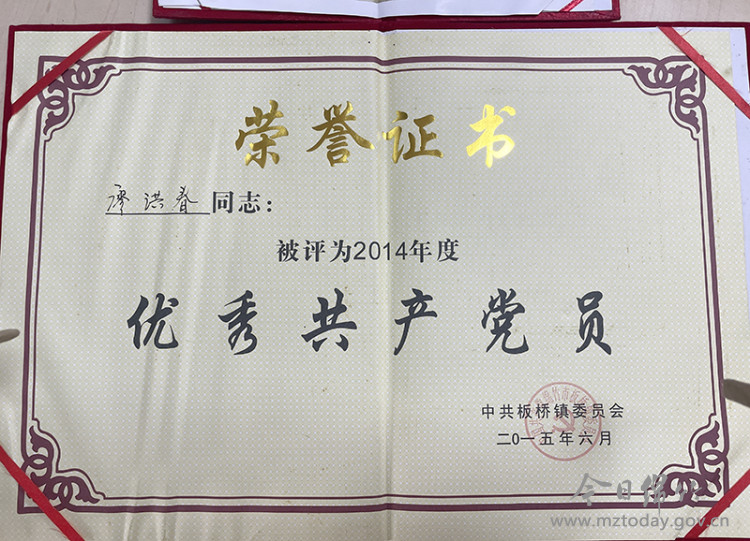 荣誉证书
廖洪春同志：
被评为2014年度
优秀共产党员
中共板桥镇委员会
二〇一五年六月
今日绵竹
www.mztoday.gov.cn